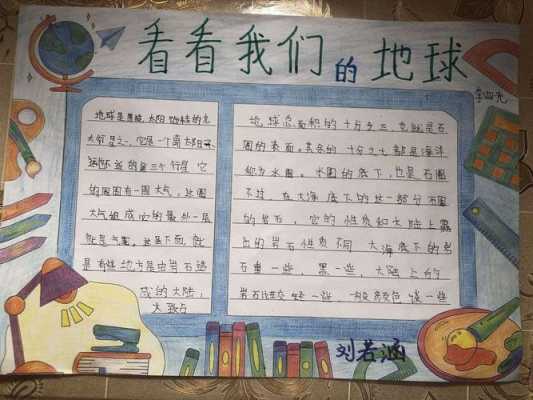 看看我们的地球
李四光
地球是围绕太阳旋转的九
大行星之一,它是一个离太阳
远的第三个行星它
的周围有一圈大气,这圈
大气组成它的最外一层
就是气圈。这层下面,就
是有些地方是由岩石造
成的大陆,
大致占
地球总面积的十分之三,也就是石
圈的表面。其余的十分之七都是海洋
称为水圈。水圈的底下,也是石圈
不过,在大海底下的这一部分石圈
的岩石,它的性质和大陆上露
出的岩石性质不同 大海底下的岩
石重一些、黑一些,大陆上的
岩石比较轻一些,一般颜色淡一些
刘若涵